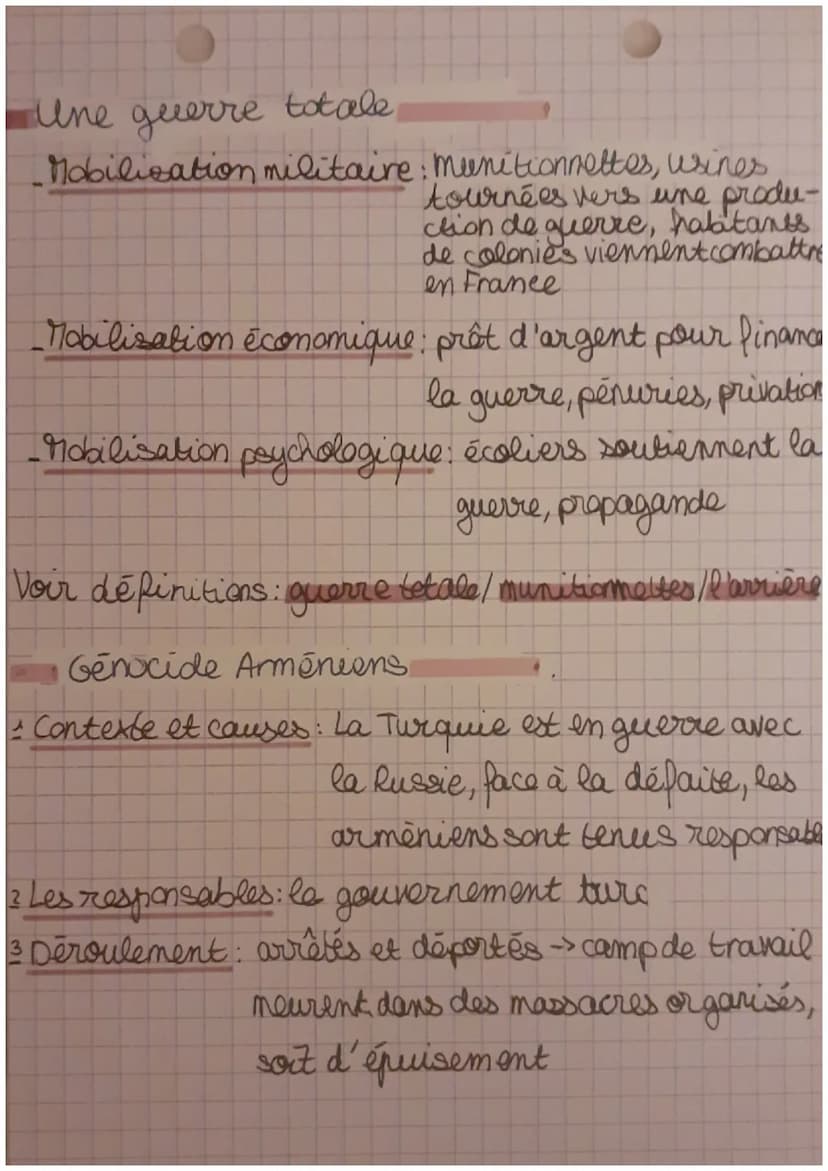 Une guerre totale
- Mobilisation militaire : munitionnettes, usines
tournées vers une produ-
ction de guerre, habitants
de colonies viennent combattre
en France
- Mobilisation économique : prêt d'argent pour financ
la guerre, pénuries, privation
- Mobilisation psychologique : écoliers soutiennent la
guerre, propagande
Voir définitions : guerre totale / munitionnettes / l'arrière
Génocide Arméniens
1 Contexte et causes : La Turquie est en guerre avec
la Russie, face à la défaite, les
arméniens sont tenus responsable
2 Les responsables : le gouvernement turc
3 Déroulement : arrêtés et déportés -> camp de travail
meurent dans des massacres organisés,
soit d'épuisement